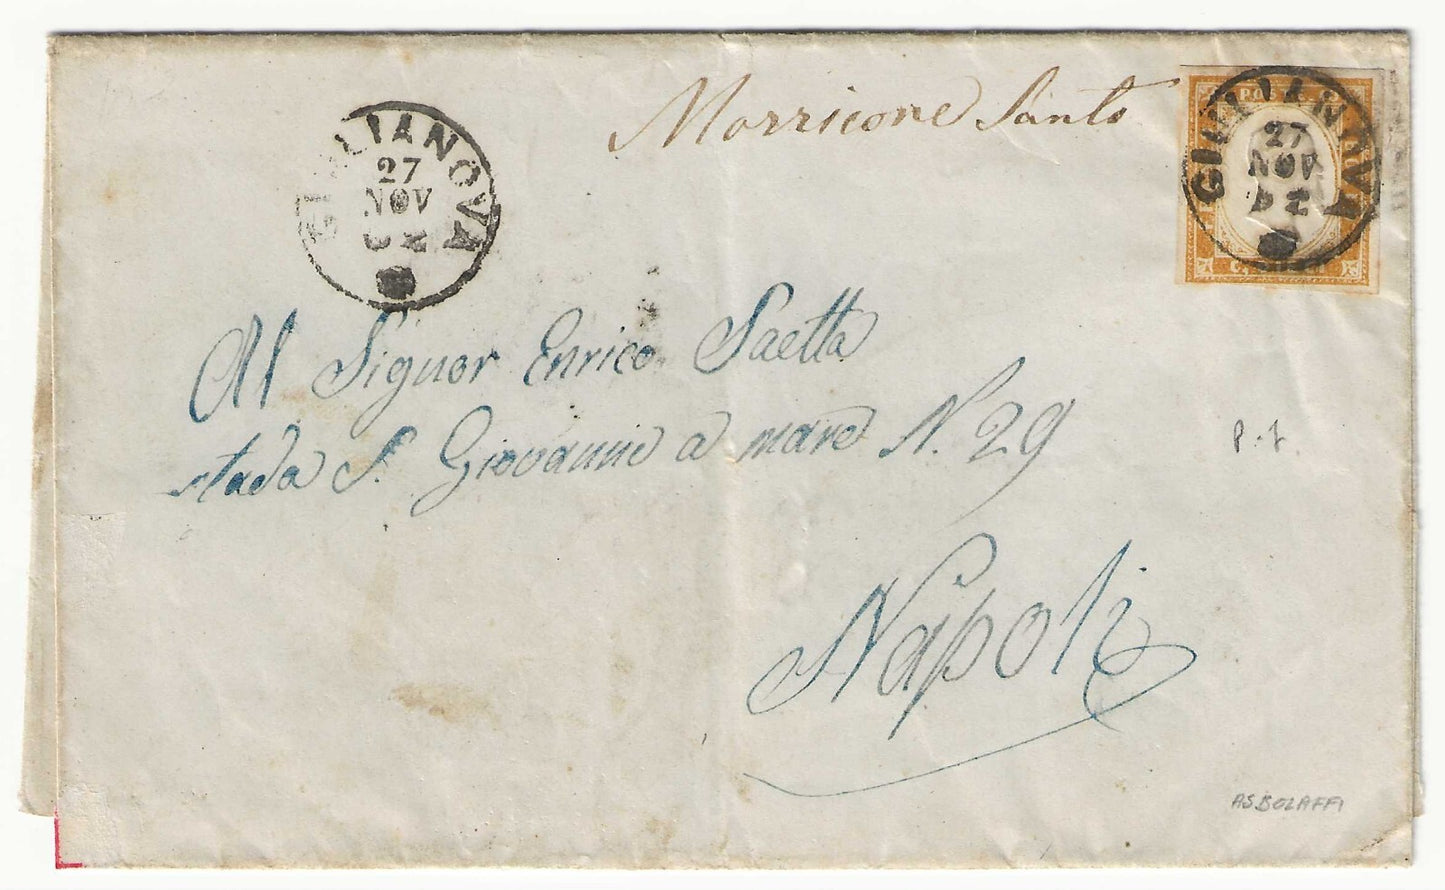 Morricone Santo
GIULIANOVA
27
NOV
62
PO
GIULIANOVA
27
NOV
62
C.
Al Signor Enrico Saetta
stada S. Giovanni a mare N. 29
Napoli
P.t.
ASBOLAFFI